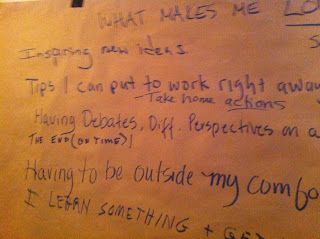 WHAT MAKES ME LO
S
Inspiring new ideas
Tips I can put to work right away
Take home actions
Having Debates, Diff. Perspectives on a
THE END (ON TIME)!
Having to be outside my comfo
I LEARN SOMETHING + GE